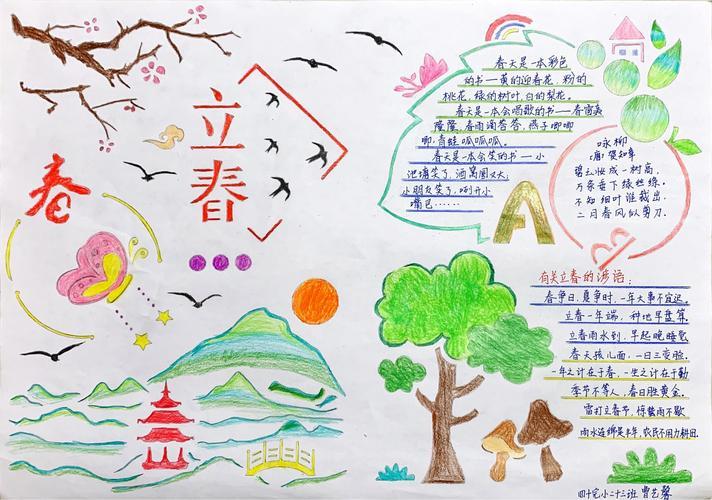 立春
春
春天是一本彩色
的书——黄的迎春花，粉的
桃花，绿的树叶，白的梨花。
春天是一本会唱歌的书——春雷轰
隆隆，春雨滴答答，燕子唧唧
唧，青蛙呱呱呱。
春天是一本会笑的书——小
池塘笑了，酒窝圆又大；
小朋友笑了，咧开小
嘴巴……
咏柳
唐 贺知章
碧玉妆成一树高，
万条垂下绿丝绦。
不知细叶谁裁出，
二月春风似剪刀。
有关立春的谚语：
春争日，夏争时，一年大事不宜迟。
立春一年端，种地早盘算。
立春雨水到，早起晚睡觉
春天孩儿面，一日三变脸。
一年之计在于春，一生之计在于勤
季节不等人，春日胜黄金。
雷打立春节，惊蛰雨不歇
雨水连绵是丰年，农民不用力耕田。
四十完小二十三班 曹艺馨